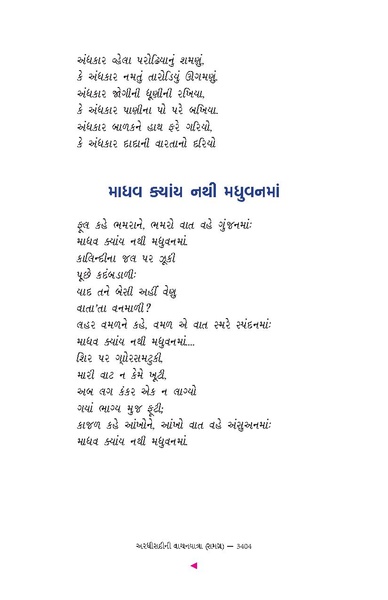 અંધકાર વ્હેલા પરોઢિયાનું શમણું,
કે અંધકાર નમતું તારોડિયું ઊગમણું,
અંધકાર જોગીની ધૂણીની રખિયા,
કે અંધકાર પાણીના પો પરે બખિયા.
અંધકાર બાળકને હાથ ફરે ગરિયો,
કે અંધકાર દાદાની વારતાનો દરિયો
માધવ ક્યાંય નથી મધુવનમાં
ફૂલ કહે ભમરાને, ભમરો વાત વહે ગુંજનમાંઃ
માધવ ક્યાંય નથી મધુવનમાં.
કાલિન્દીના જલ પર ઝૂકી
પૂછે કદંબડાળીઃ
યાદ તને બેસી અહીં વેણુ
વાતા'તા વનમાળી ?
લહર વમળને કહે, વમળ એ વાત સ્મરે સ્પંદનમાંઃ
માધવ ક્યાંય નથી મધુવનમાં....
શિર પર ગોરસમટુકી,
મારી વાટ ન કેમે ખૂટી,
અબ લગ કંકર એક ન લાગ્યો
ગયાં ભાગ્ય મુજ ફૂટી;
કાજળ કહે આંખોને, આંખો વાત વહે અંસુઅનમાંઃ
માધવ ક્યાંય નથી મધુવનમાં.
અરધીસદીની વાચનયાત્રા (સમગ્ર) — 3404